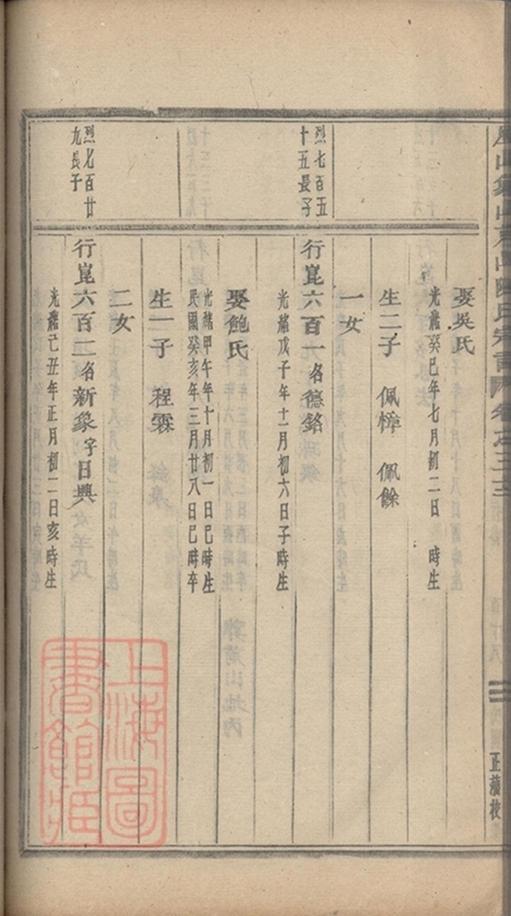 娶吳氏
光緒癸巳年七月初二日　時生
生二子　佩樟　佩餘
一女
烈七百五
十五長子
行崑六百一名德銘
光緒戊子年十一月初六日子時生
娶鮑氏
光緒甲午年十月初一日巳時生
民國癸亥年三月廿八日巳時卒
生一子　程霖
二女
烈七百廿
九長子
行崑六百二名新象字日興
光緒己丑年正月初二日亥時生
上海圖
書館藏